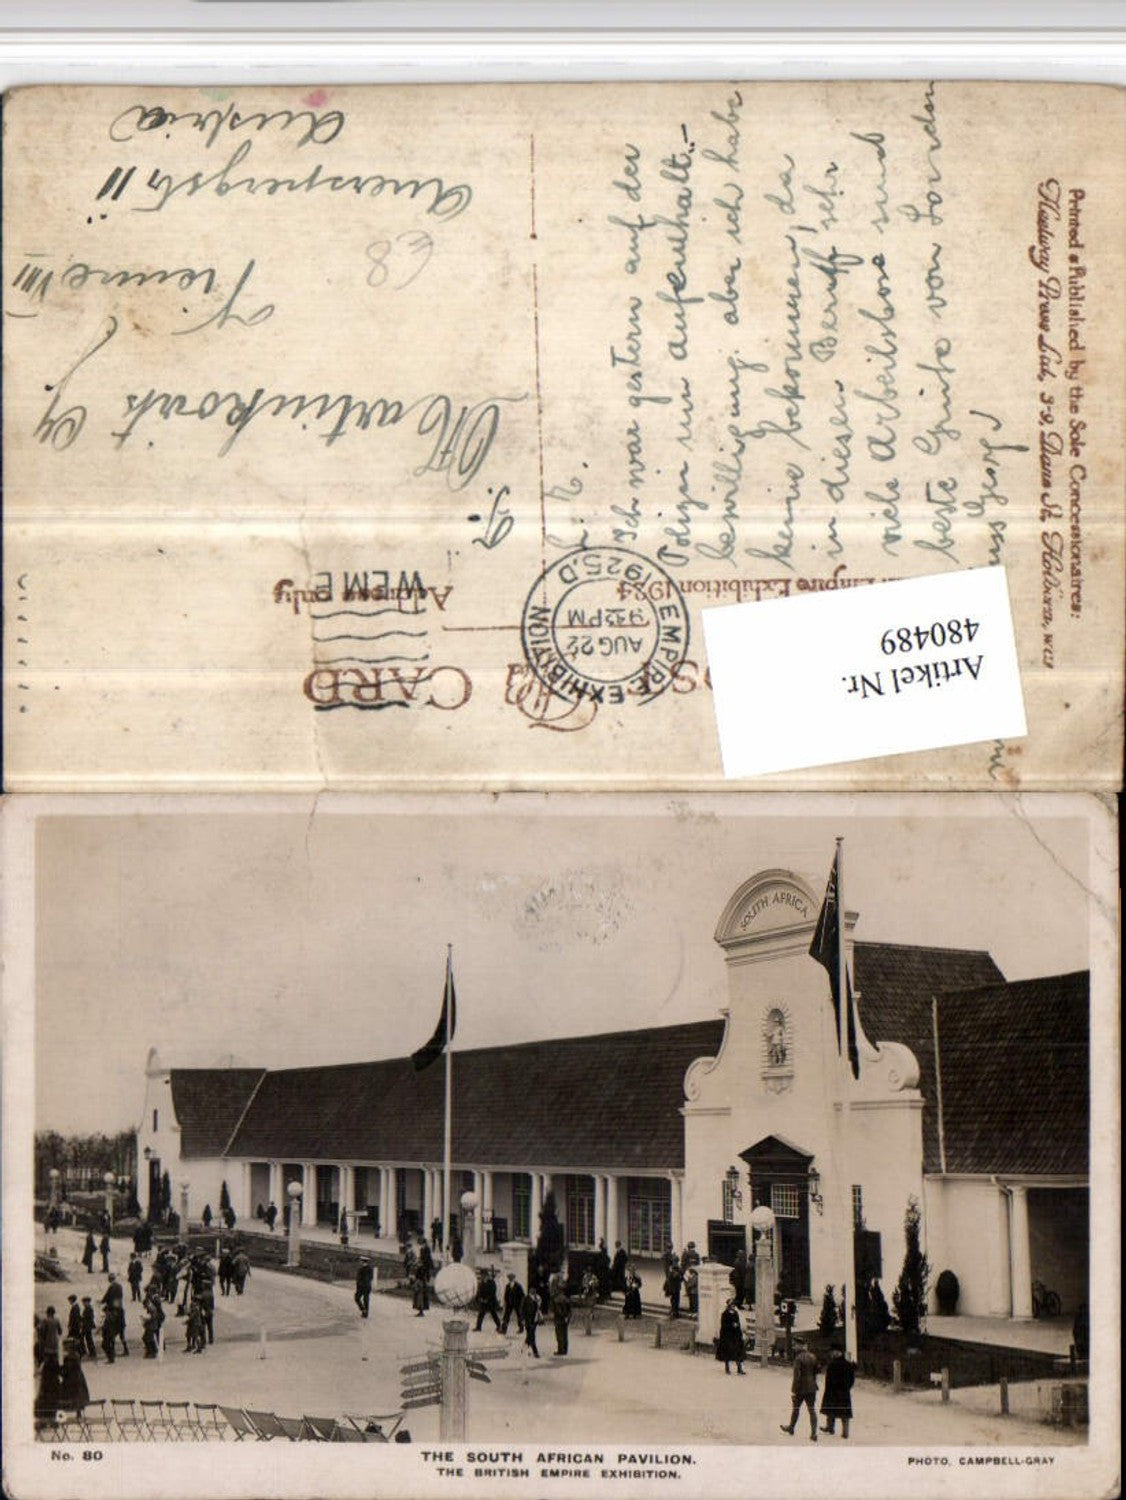 POST CARD
British Empire Exhibition 1924
Address only
EMPIRE EXHIBITION
AUG 22
1925.D
WEMB
Martinkovits
Vienne VIII
Auerspergstr 11
Austria
68
L. K.
Ich war gestern auf der
Polizei um aufenthalt.-
bewilligung aber ich habe
keine bekommen, da
in diesen Beruff sehr
viele Arbeitslose sind
beste Grüße von London
Georg
Printed & Published by the Sole Concessionaires:
Fleetway Press Ltd, 3-9, Dane St, Holborn, WC1
Artikel Nr.
480489
SOUTH AFRICA
No. 80
THE SOUTH AFRICAN PAVILION.
THE BRITISH EMPIRE EXHIBITION.
PHOTO. CAMPBELL-GRAY